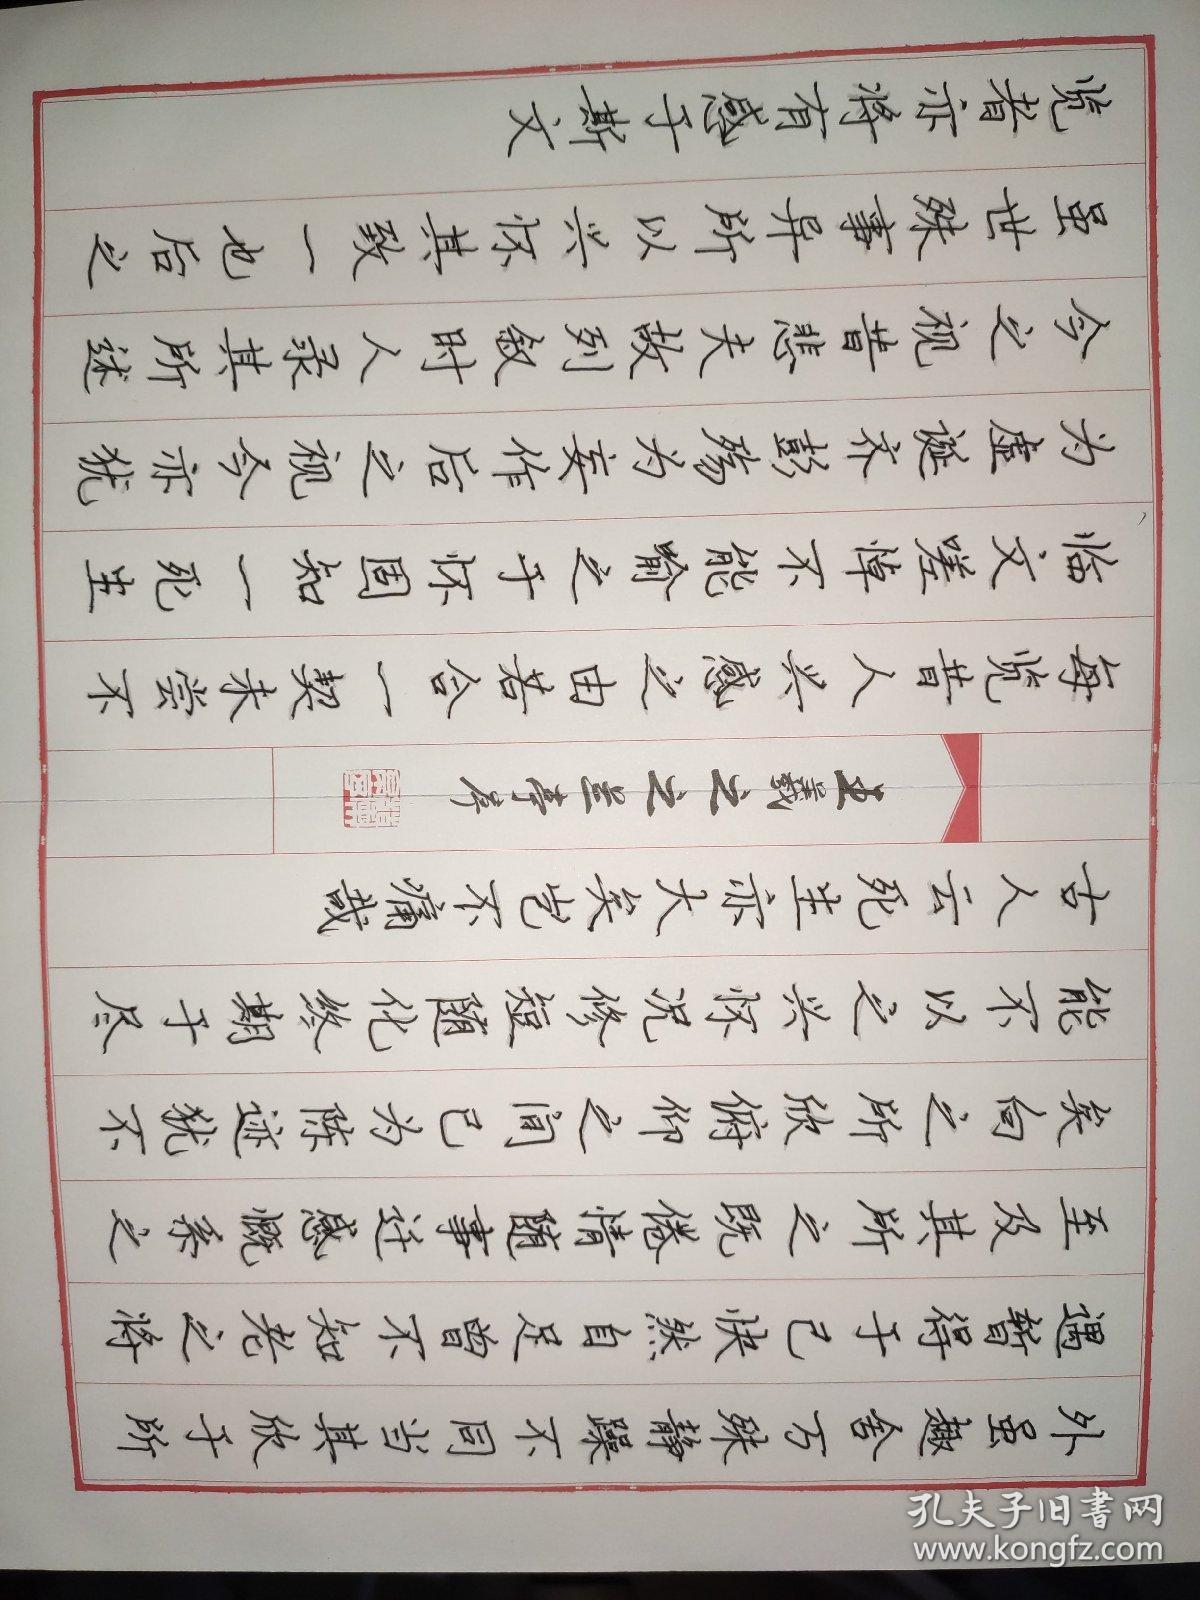 外虽趣舍万殊静躁不同当其欣于所
遇暂得于己快然自足曾不知老之将
至及其所之既倦情随事迁感慨系之
矣向之所欣俯仰之间已为陈迹犹不
能不以之兴怀况修短随化终期于尽
古人云死生亦大矣岂不痛哉
王羲之之兰亭序
每览昔人兴感之由若合一契未尝不
临文嗟悼不能喻之于怀固知一死生
为虚诞齐彭殇为妄作后之视今亦犹
今之视昔悲夫故列叙时人录其所述
虽世殊事异所以兴怀其致一也后之
览者亦将有感于斯文
孔夫子旧书网
www.kongfz.com